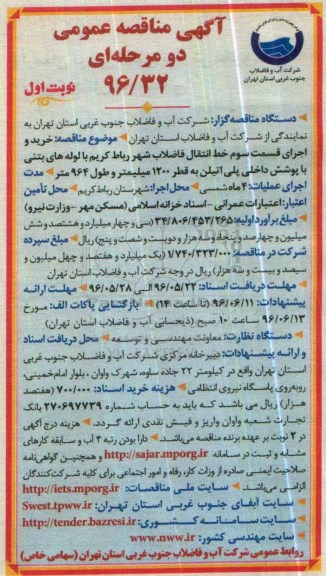 آگهی مناقصه عمومی
دو مرحله‌ای
۹۶/۳۲
شرکت آب و فاضلاب
جنوب غربی استان تهران
نوبت اول
دستگاه مناقصه‌گزار: شرکت آب و فاضلاب جنوب غربی استان تهران به
نمایندگی از شرکت آب و فاضلاب استان تهران موضوع مناقصه: خرید و
اجرای قسمت سوم خط انتقال فاضلاب شهر رباط کریم با لوله های بتنی
با پوشش داخلی پلی اتیلن به قطر ۱۲۰۰ میلیمتر و طول ۹۶۴ متر مدت
اجرای عملیات: ۴ ماه شمسی محل اجرا: شهرستان رباط کریم محل تأمین
اعتبار: اعتبارات عمرانی - اسناد خزانه اسلامی (مسکن مهر - وزارت نیرو)
مبلغ برآورد اولیه: ۳۴/۸۰۶/۴۵۳/۲۶۵ (سی و چهار میلیارد و هشتصد و شش
میلیون و چهارصد و پنجاه و سه هزار و دویست و شصت و پنج) ریال مبلغ سپرده
شرکت در مناقصه: ۱/۷۴۰/۳۲۳/۰۰۰ (یک میلیارد و هفتصد و چهل میلیون و
سیصد و بیست و سه هزار) ریال در وجه شرکت آب و فاضلاب استان تهران
مهلت دریافت اسناد: ۹۶/۰۵/۲۲ الی ۹۶/۰۵/۲۸ مهلت ارائه
پیشنهادات: ۹۶/۰۶/۱۱ (تا ساعت ۱۴) بازگشایی پاکات الف: مورخ
۹۶/۰۶/۱۳ ساعت ۱۰ صبح (ذیحسابی آب و فاضلاب استان تهران)
دستگاه نظارت: معاونت مهندسی و توسعه محل دریافت اسناد
و ارائه پیشنهادات: دبیرخانه مرکزی شرکت آب و فاضلاب جنوب غربی
استان تهران واقع در کیلومتر ۲۲ جاده ساوه، شهرک واوان، بلوار امام خمینی،
روبه‌روی پاسگاه نیروی انتظامی هزینه خرید اسناد: ۷۰۰/۰۰۰ (هفتصد
هزار) ریال می باشد که باید به حساب شماره ۲۷۰۶۹۷۷۳۹ بانک
تجارت شعبه واوان واریز و فیش نقدی ارائه گردد. هزینه درج آگهی
در ۲ نوبت بر عهده برنده مناقصه می‌باشد. دارا بودن رتبه ۲ آب و سابقه کارهای
مشابه و ثبت در سامانه http://sajar.mporg.ir و همچنین گواهی‌نامه
صلاحیت ایمنی صادره از وزات کار، رفاه و امور اجتماعی برای کلیه شرکت‌کنندگان
الزامی می‌باشد. سایت ملی مناقصات: http://iets.mporg.ir
سایت آبفای جنوب غربی استان تهران: Swest.tpww.ir
سایت سامانه کشوری: http://tender.bazresi.ir
سایت مهندسی کشور: www.nww.ir
روابط عمومی شرکت آب و فاضلاب جنوب غربی استان تهران (سهامی خاص)